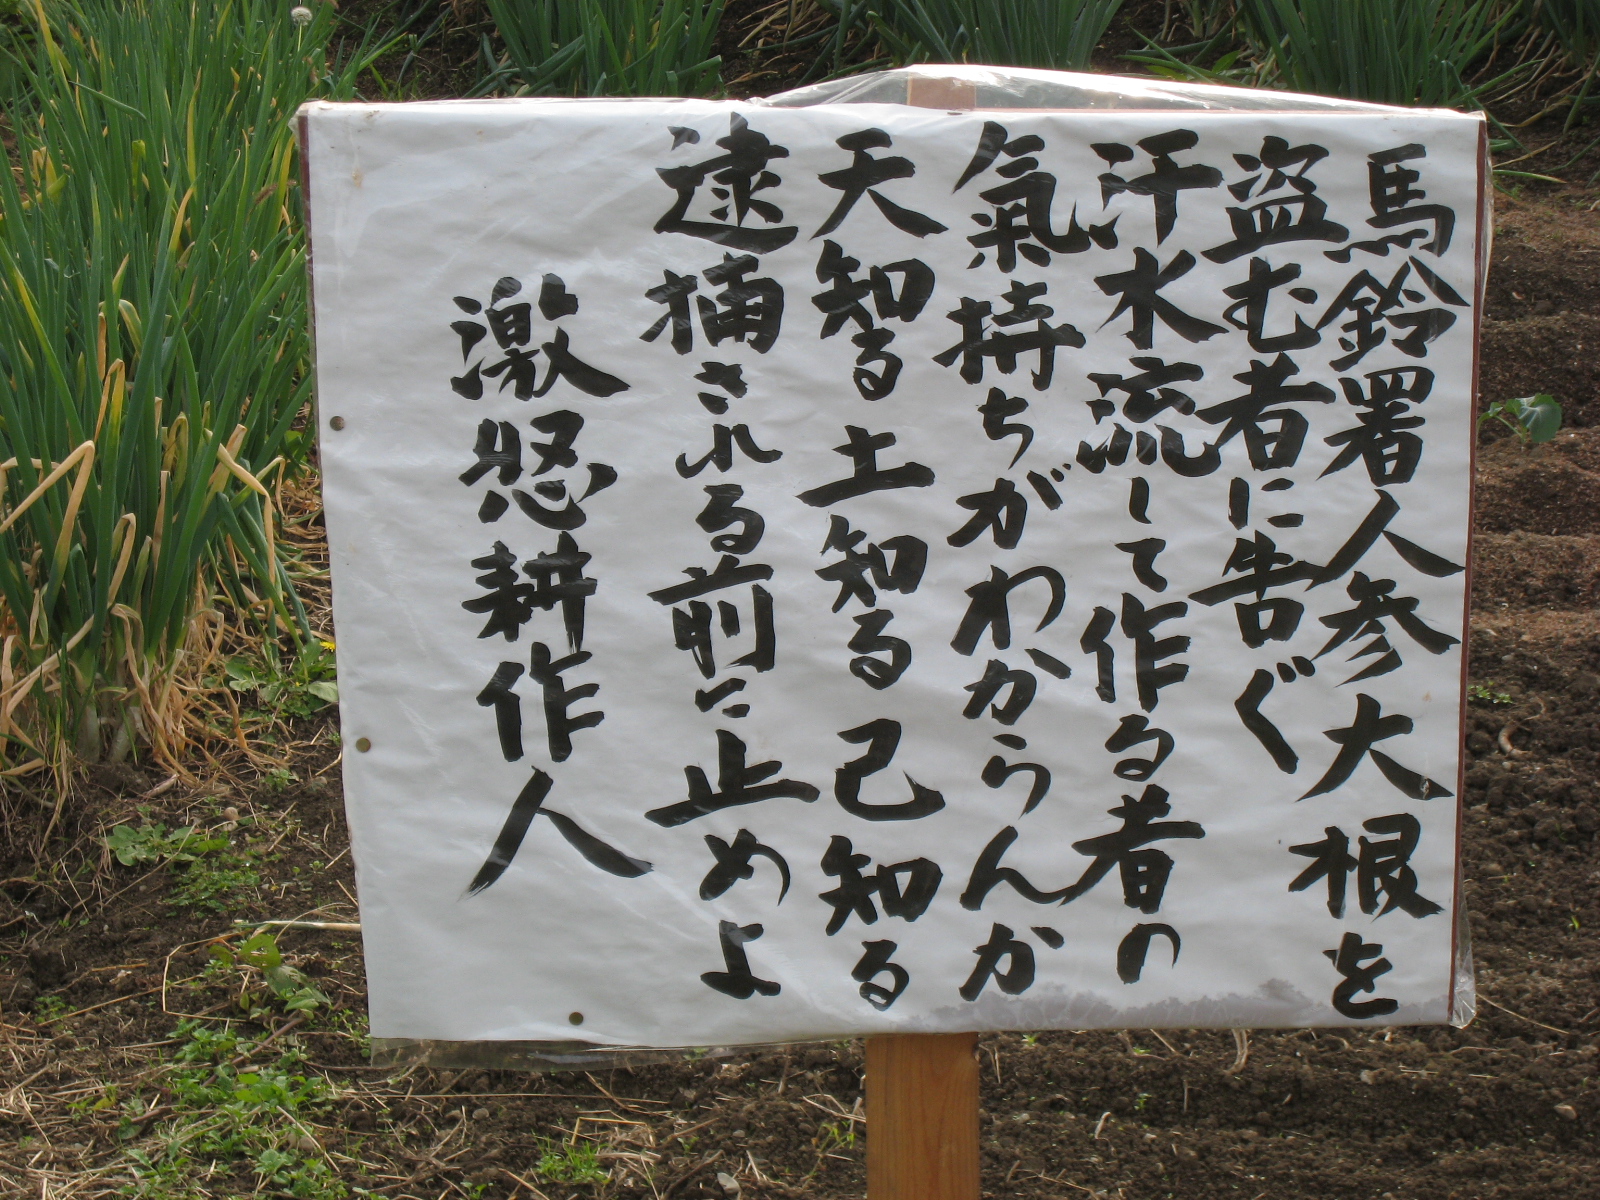 馬鈴署人参大根を
盗む者に告ぐ
汗水流して作る者の
氣持ちがわからんか
天知る土知る己知る
逮捕される前に止めよ
激怒耕作人